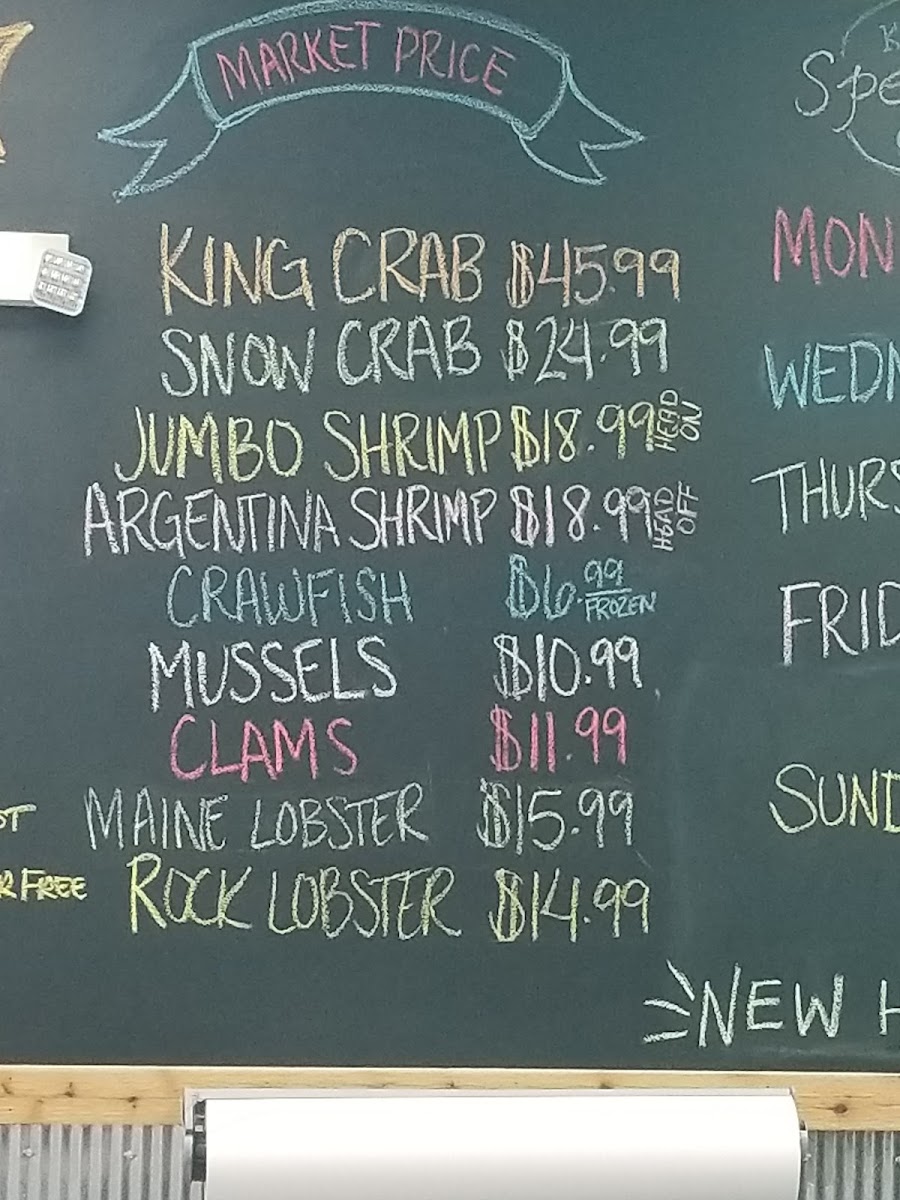 MARKET PRICE
KING CRAB $45.99
SNOW CRAB $24.99
JUMBO SHRIMP $18.99 HEAD ON
ARGENTINA SHRIMP $18.99 HEAD OFF
CRAWFISH $6.99 FROZEN
MUSSELS $10.99
CLAMS $11.99
MAINE LOBSTER $15.99
ROCK LOBSTER $14.99
FREE
Spe
MON
WEDN
THURS
FRID
SUND
NEW H